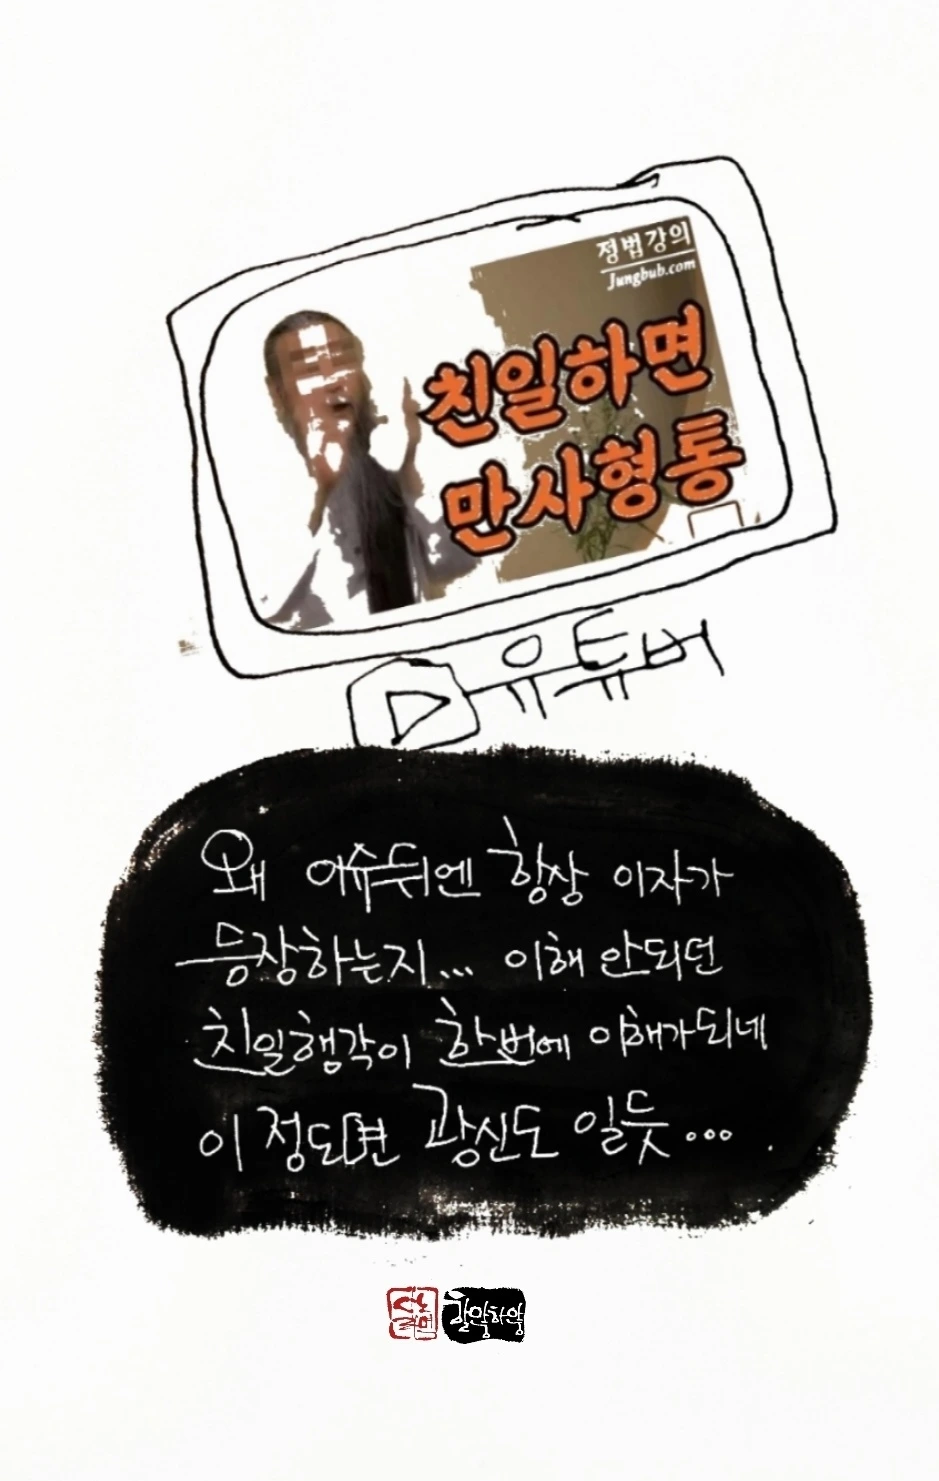 정법강의
Jungbub.com
친일하면
만사형통
유튜버
왜 이슈뒤엔 항상 이자가
등장하는지... 이해 안되던
친일행각이 한번에 이해가되네
이 정도면 광신도 일듯...